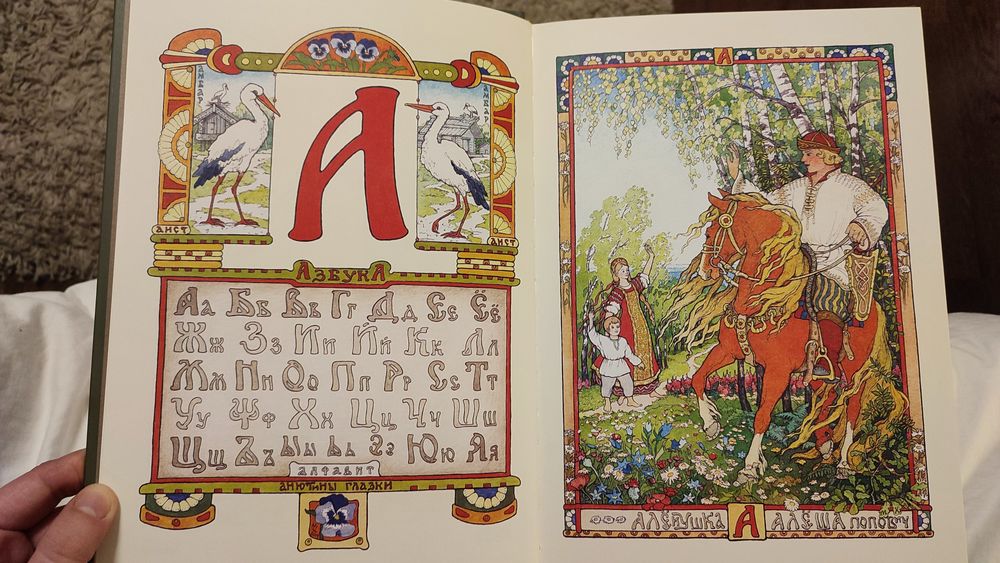 АМБАР
А
АМБАР
АИСТ
АИСТ
АЗБУКА
Аа Бб Вв Гг Дд Ее Ёё
Жж Зз Ии Йй Кк Лл
Мм Нн Оо Пп Рр Сс Тт
Уу Фф Хх Цц Чч Шш
Щщ Ъъ Ыы Ьь Ээ Юю Яя
АЛФАВИТ
АНЮТИНЫ ГЛАЗКИ
А
АЛЁНУШКА А АЛЁША ПОПОВИЧ